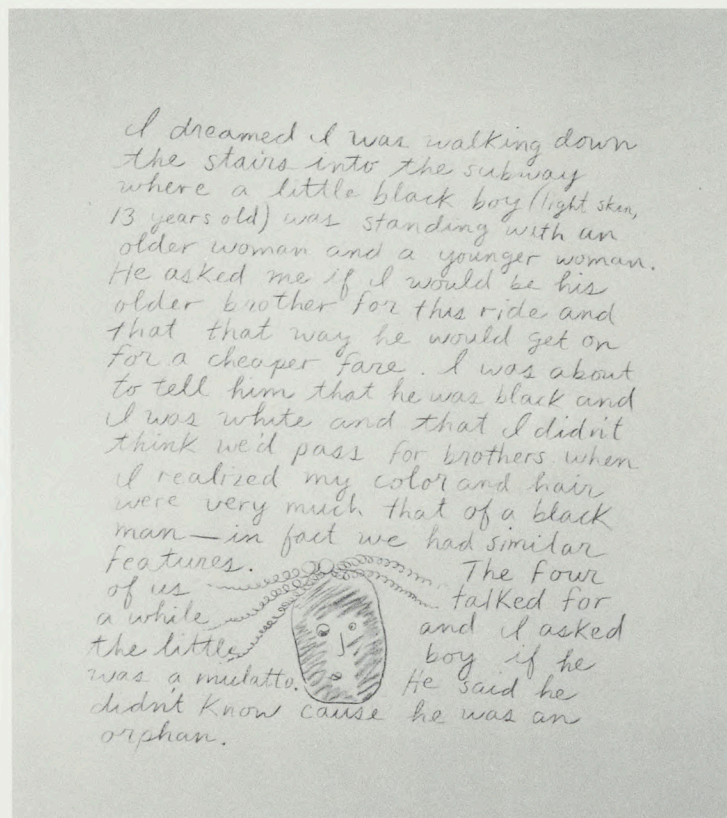 I dreamed I was walking down
the stairs into the subway
where a little black boy (light skin,
13 years old) was standing with an
older woman and a younger woman.
He asked me if I would be his
older brother for this ride and
that that way he would get on
for a cheaper fare. I was about
to tell him that he was black and
I was white and that I didn't
think we'd pass for brothers when
I realized my color and hair
were very much that of a black
man—in fact we had similar
features. The four
of us talked for
a while and I asked
the little boy if he
was a mulatto. He said he
didn't know cause he was an
orphan.